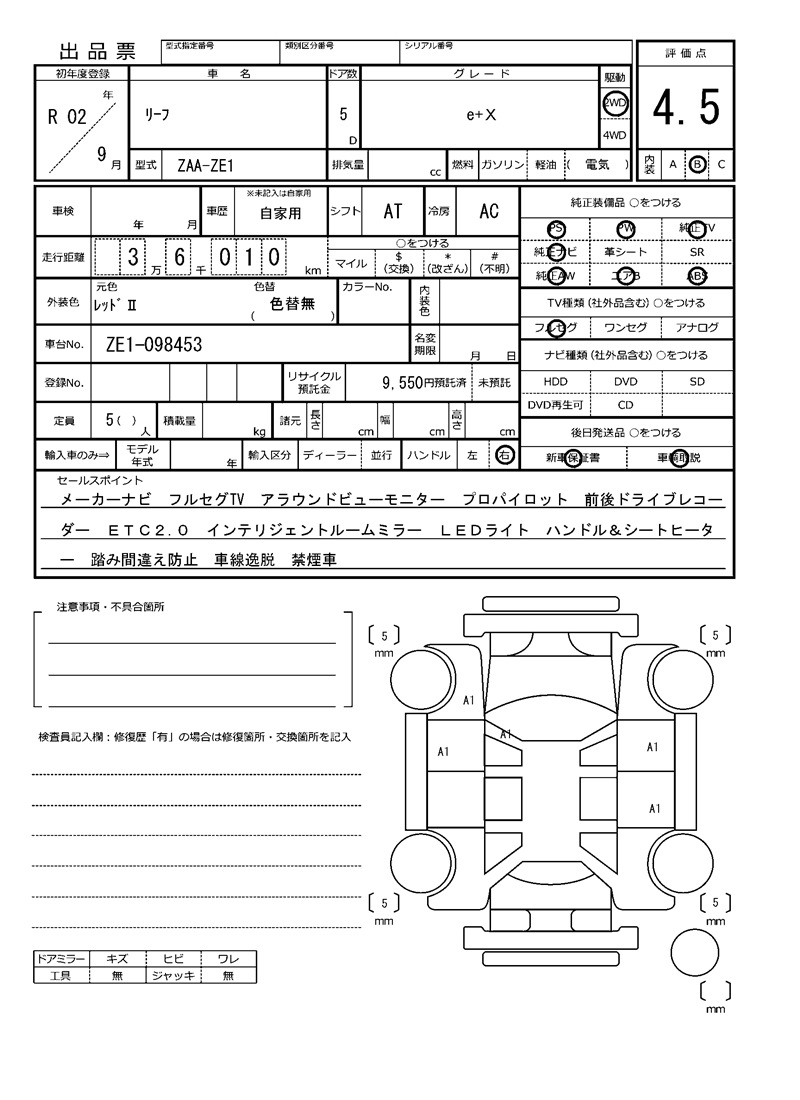 出品票 型式指定番号 類別区分番号 シリアル番号 評価点
初年度登録 車名 ドア数 グレード 駆動
R 02 年 9 月 リーフ 5 D e+X 2WD 4WD 4.5
型式 ZAA-ZE1 排気量 cc 燃料 ガソリン 軽油 ( 電気 ) 内装 A B C
車検 年 月 車歴 ※未記入は自家用 自家用 シフト AT 冷房 AC
走行距離 3 万 6 千 0 1 0 km ○をつける
マイル $(交換) *(改ざん) #(不明)
外装色 元色 レッドⅡ 色替 色替無 ( ) カラーNo. 内装色
車台No. ZE1-098453 名変期限 月 日
登録No. リサイクル預託金 9,550円預託済 未預託
定員 5( )人 積載量 kg 諸元 長さ cm 幅 cm 高さ cm
輸入車のみ⇒ モデル年式 年 輸入区分 ディーラー 並行 ハンドル 左 右
純正装備品 ○をつける
PS PW 純正TV
純正ナビ 革シート SR
純正AW エアB ABS
TV種類(社外品含む)○をつける
フルセグ ワンセグ アナログ
ナビ種類(社外品含む)○をつける
HDD DVD SD
DVD再生可 CD
後日発送品 ○をつける
新車保証書 車輌取説
セールスポイント
メーカーナビ フルセグTV アラウンドビューモニター プロパイロット 前後ドライブレコー
ダー ETC2.0 インテリジェントルームミラー LEDライト ハンドル&シートヒータ
ー 踏み間違え防止 車線逸脱 禁煙車
注意事項・不具合箇所
検査員記入欄:修復歴「有」の場合は修復箇所・交換箇所を記入
ドアミラー キズ ヒビ ワレ
工具 無 ジャッキ 無
〔 5 〕mm 〔 5 〕mm
A1
A1
A1 A1
A1
〔 5 〕mm 〔 5 〕mm
〔 〕mm